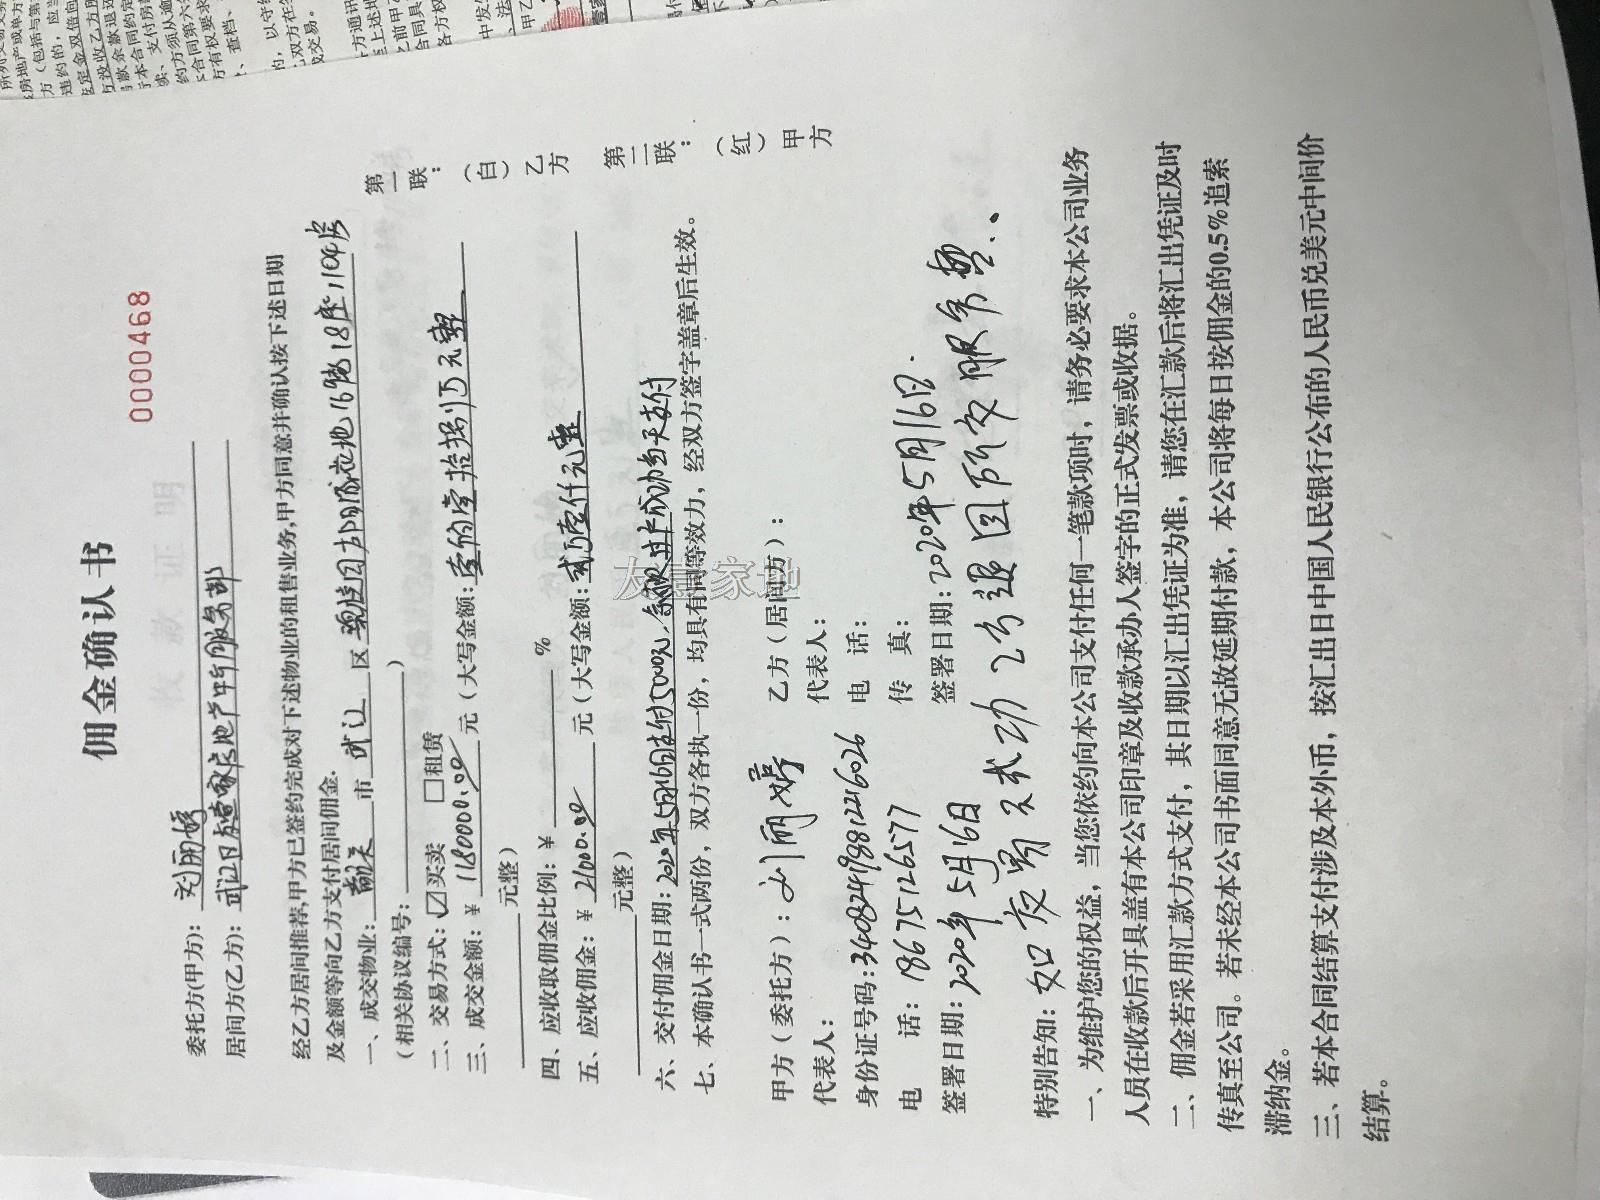 佣金确认书
0000468
委托方(甲方):刘丽婷
居间方(乙方):武江区友壹家房地产中介服务部
经乙方居间推荐,甲方已签约完成对下述物业的租售业务,甲方同意并确认按下述日期
及金额等向乙方支付居间佣金.
一、成交物业:韶关市武江区
(相关协议编号:)
二、交易方式:☑买卖 □租赁
三、成交金额:¥1180000.00元(大写金额:壹佰壹拾捌万元整
元整)
四、应收取佣金比例:¥ %
五、应收佣金:¥21000.00元(大写金额:贰万壹仟元整
元整)
六、交付佣金日期:2020年5月16日支付5000元,余款过户成功当天支付
七、本确认书一式两份,双方各执一份,均具有同等效力,经双方签字盖章后生效。
第一联:(白)乙方 第二联:(红)甲方
甲方(委托方):刘丽婷 乙方(居间方):
代表人: 代表人:
身份证号码:340824198812216026 电 话:
电 话:18675126577 传 真:
签署日期:2020年5月16日 签署日期:2020年5月16日.
特别告知:如交易不成功2方退回所交服务费.
一、为维护您的权益,当您依约向本公司支付任何一笔款项时,请务必要求本公司业务
人员在收款后开具盖有本公司印章及收款承办人签字的正式发票或收据。
二、佣金若采用汇款方式支付,其日期以汇出凭证为准,请您在汇款后将汇出凭证及时
传真至公司。若未经本公司书面同意无故延期付款,本公司将每日按佣金的0.5%追索
滞纳金。
三、若本合同结算支付涉及本外币,按汇出日中国人民银行公布的人民币兑美元中间价
结算。
友壹家地